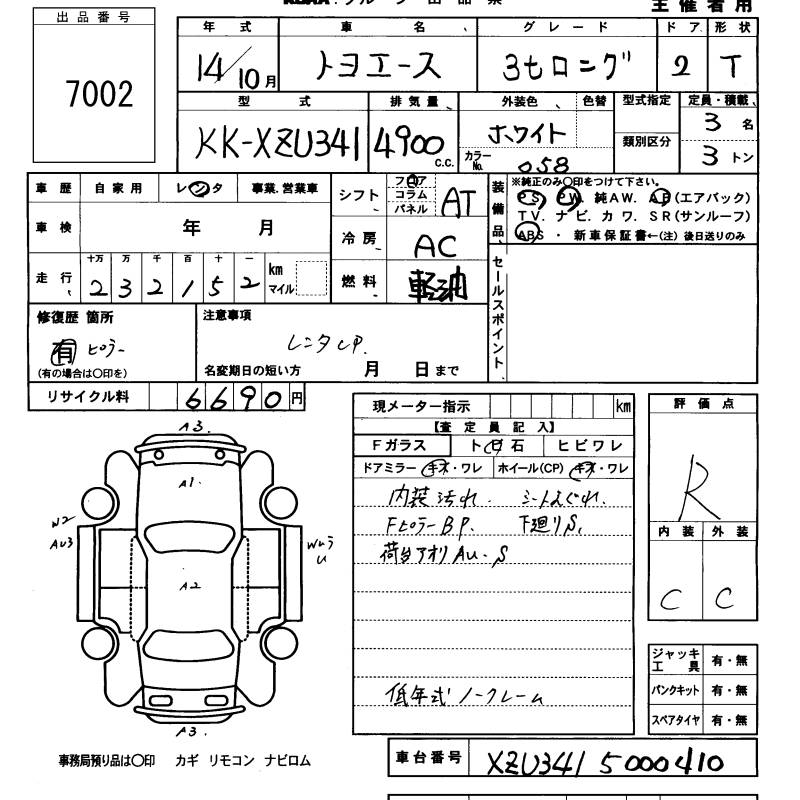 主催者用
出品番号
7002
年式 車名 グレード ドア 形状
14/10月 トヨエース 3tロング 2 T
型式 排気量 外装色 色替 型式指定 定員・積載
KK-XZU341 4900 c.c. ホワイト 類別区分 3名
カラーNo. 058 3トン
車歴 自家用 レンタ 事業.営業車
シフト フロア コラム パネル AT
装備品 ※純正のみ〇印をつけて下さい。
PS, PW, 純AW. AB(エアバック)
TV. ナビ. カワ. SR(サンルーフ)
ABS ・ 新車保証書←(注)後日送りのみ
車検 年 月
冷房 AC
走行 十万 万 千 百 十 一 km マイル
232152
燃料 軽油
セールスポイント
修復歴 箇所
有 ピラー
(有の場合は〇印を)
注意事項
レンタUP.
名変期日の短い方 月 日まで
リサイクル料 6690円
現メーター指示 km
評価点
R
【査定員記入】
Fガラス ト日石 ヒビワレ
ドアミラー キズ・ワレ ホイール(CP) キズ・ワレ
内装汚れ. シートスグレ.
FピラーBP. 下廻りS.
荷台アオリAU.S
低年式ノークレーム
内装 外装
C C
ジャッキ 工具 有・無
パンクキット 有・無
スペアタイヤ 有・無
A3.
A1.
W2
AU3
A2
Wuう
U
A3.
事務局預り品は〇印 カギ リモコン ナビロム
車台番号 XZU341 5000410